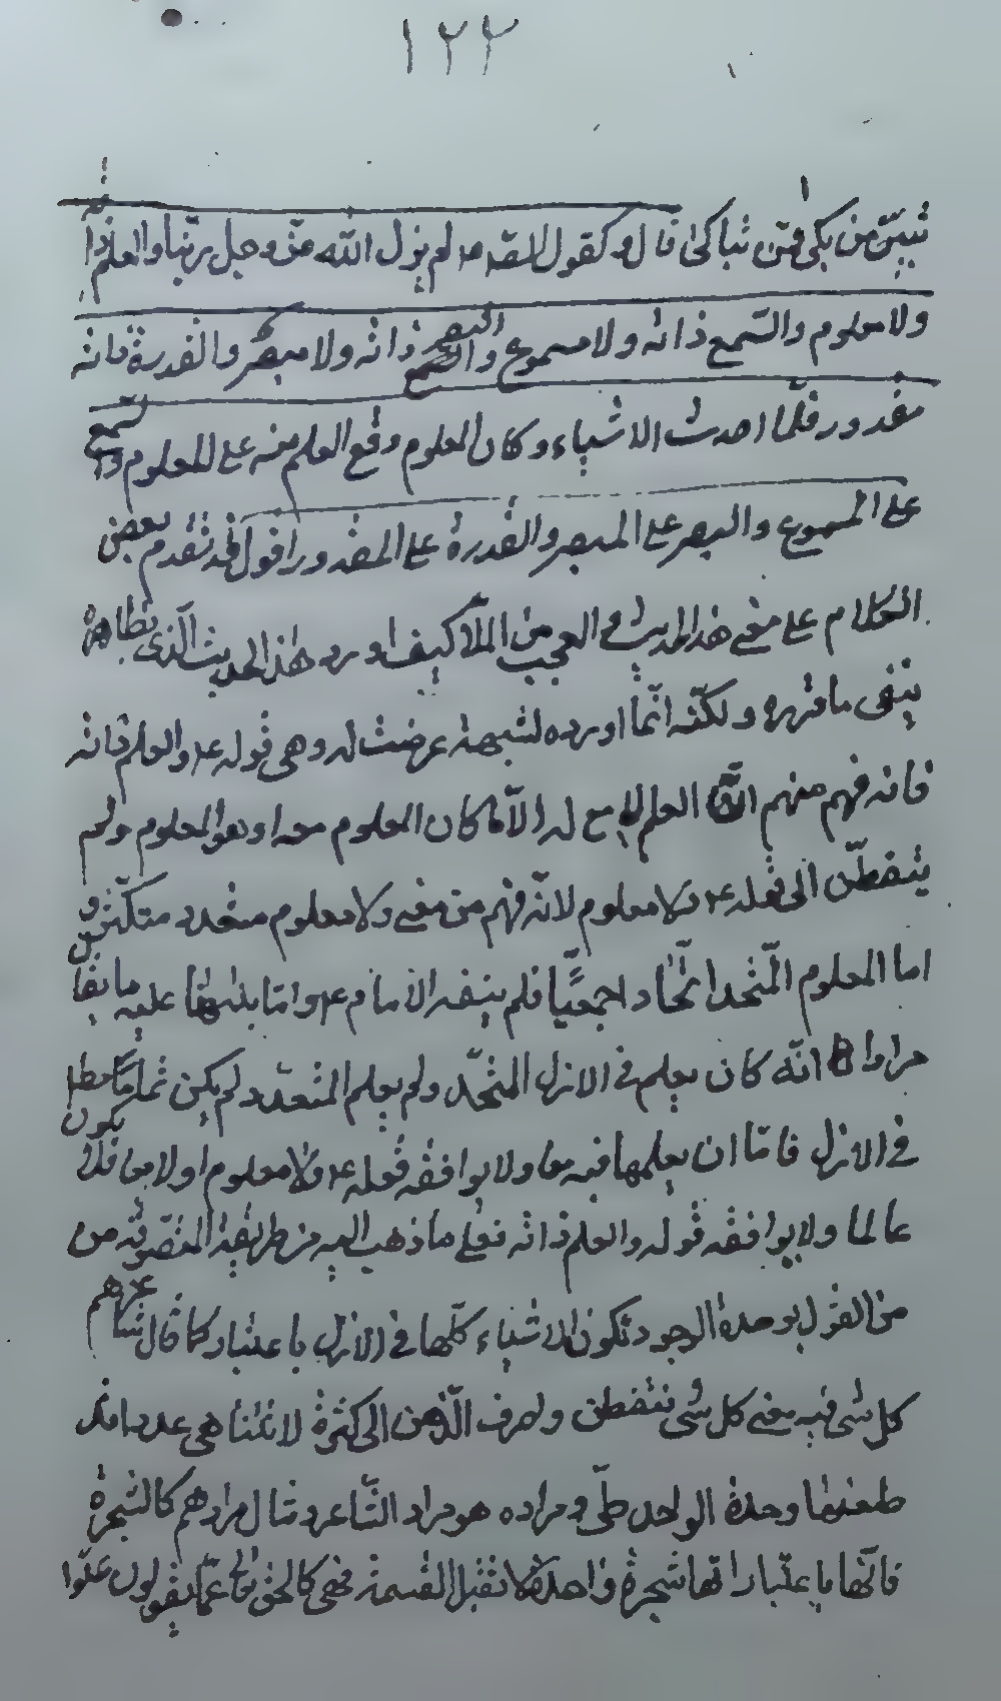 ١٢٢
تبيّن من بكى ممّن تباكى قال وكقول الصّٰ ع لم يزل الله عزّ وجل ربّنا والعلم ذاته
ولا معلوم والسّمع ذاته ولا مسموع والبصر ذاته ولا مبصَر والقدرة ذاته
مقدور فلمّا احدث الاشياء وكان المعلوم وقع العلم منه على المعلوم والسّمع
على المسموع والبصر على المبصر والقدرة على المقدور اقول قد تقدم بعض
الكلام على معنى هذا الحديث والعجب من الملّا كيف اورد هذا الحديث الّذي بظاهره
ينفى ما قرره ولكنّه انّما اورده لشبهة عرضت له وهى قوله ع والعلم ذاته
فانه فهم منهم انّ العلم لا له الّا ما كان المعلوم معه او هو المعلوم ولم
يتفطّن الى قوله ع ولا معلوم لانّه فهم من معنى ولا معلوم متعدد متكثّر و
اما المعلوم المتّحد اتّحادا جمعيّا فلم ينفه الامام ع وامّا عليه ما
مراد انّه كان يعلم في الازل المتّحد ولم يعلم المتعدّد ولم يكن ثم
في الازل فامّا ان يعلمها فيه معا ولا يوافقه قوله ع ولا معلوم اولا معا فلا يكون
عالما ولا يوافقه قوله والعلم ذاته فعلى ما ذهب اليه من طريقة المتصوّفة من
من القول بوحدة الوجود تكون الاشياء كلّها في الازل باعتبار كما قال شاعرهم
كل شى فيه معنى كل شى فتفطن واصرف الذّهن الى كثرة لا تتناهى عددا قد
طعنتها وحدة الواحد طىّ ومراده هو مراد الشّاعر ومثال مرادهم كالشجرة
فانّها باعتبار انّها شجرة واحدة لا تقبل القسمة فهى كالحق تعالى عمّا يقولون علوّا